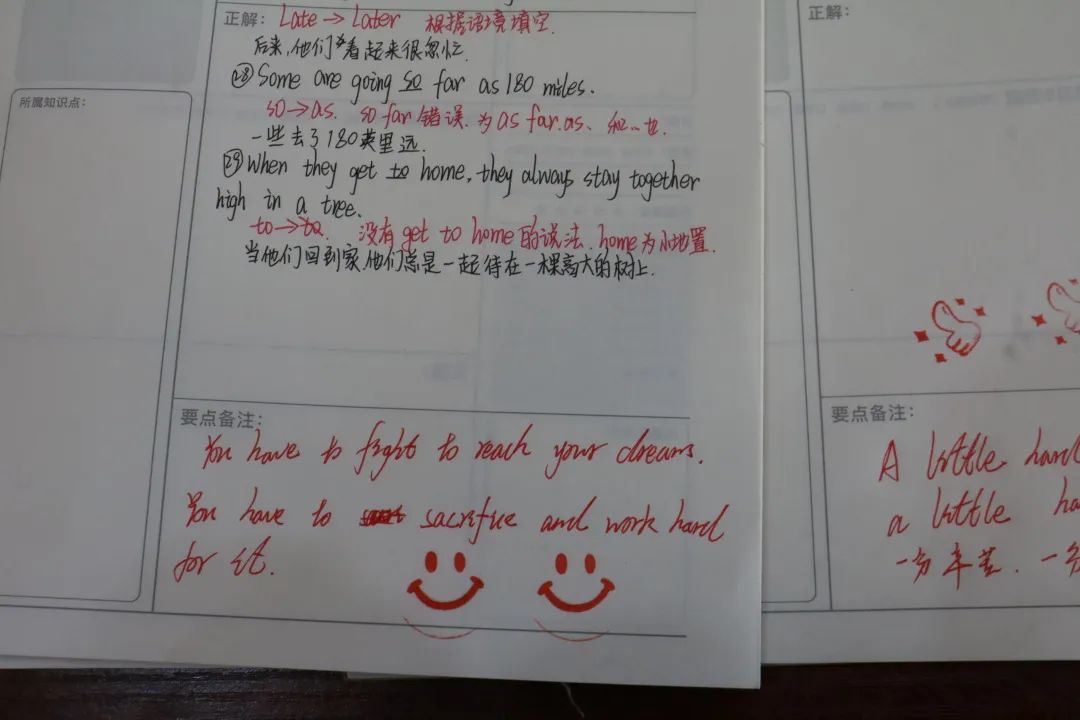 正解: Late → Later 根据语境填空.
后来,他们看起来很忽忙.
㉘ Some are going so far as 180 miles.
so → as. so far 错误. 为 as far as、
一些去了180英里远.
㉙ When they get to home, they always stay together
high in a tree.
to → to. 没有 get to home 的说法. home 为小地置.
当他们回到家.他们总是一起待在一棵高大的树上.
所属知识点:
要点备注:
You have to fight to reach your dreams.
You have to sacrifice and work hard
for it.
正解:
要点备注:
A little hard
a little ha
一分辛苦. 一分